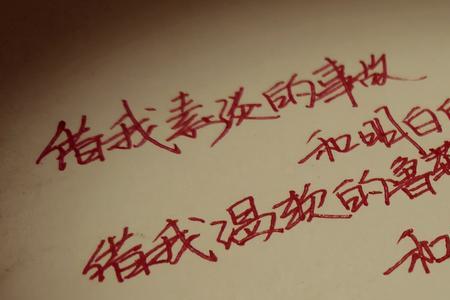 借我素淡的事故
和明白的
借我温软的鲁莽
和